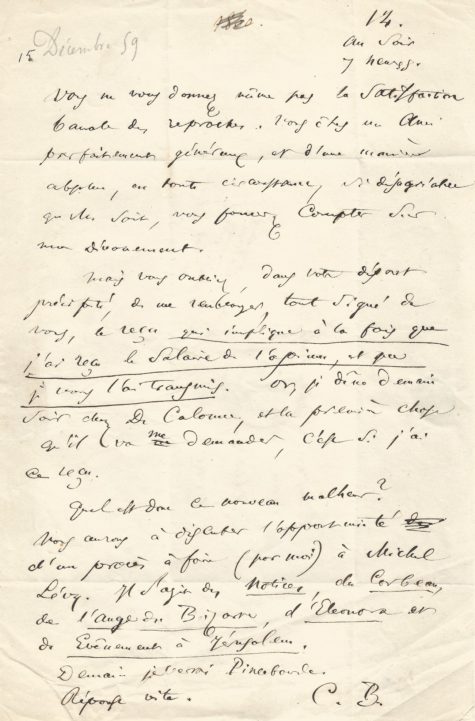 15 Décembre 59
14.
au soir
7 heures.
Vous ne vous donnez même pas la satisfaction
banale des reproches. Vous êtes un ami
parfaitement généreux, et d'une manière
absolue, en toute circonstance, si désagréable
qu'elle soit, vous pouvez compter sur
mon dévouement.
Mais vous oubliez, dans votre départ
précipité, de me renvoyer, tout signé de
vous, le reçu qui implique à la fois que
j'ai reçu le salaire de l'opium, et que
je vous l'ai transmis. Or, je dîne demain
soir chez De Calonne, et la première chose
qu'il va me demander, c'est si j'ai
ce reçu.
Quel est donc ce nouveau malheur?
Nous aurons à discuter l'opportunité
d'un procès à faire (par moi) à Michel
Lévy. Il s'agit des Notices, du Corbeau,
de l'Ange du Bizarre, d'Eleonora et
de Evénements à Jérusalem.
Demain je verrai Pincebourde.
Réponse vite. C. B.